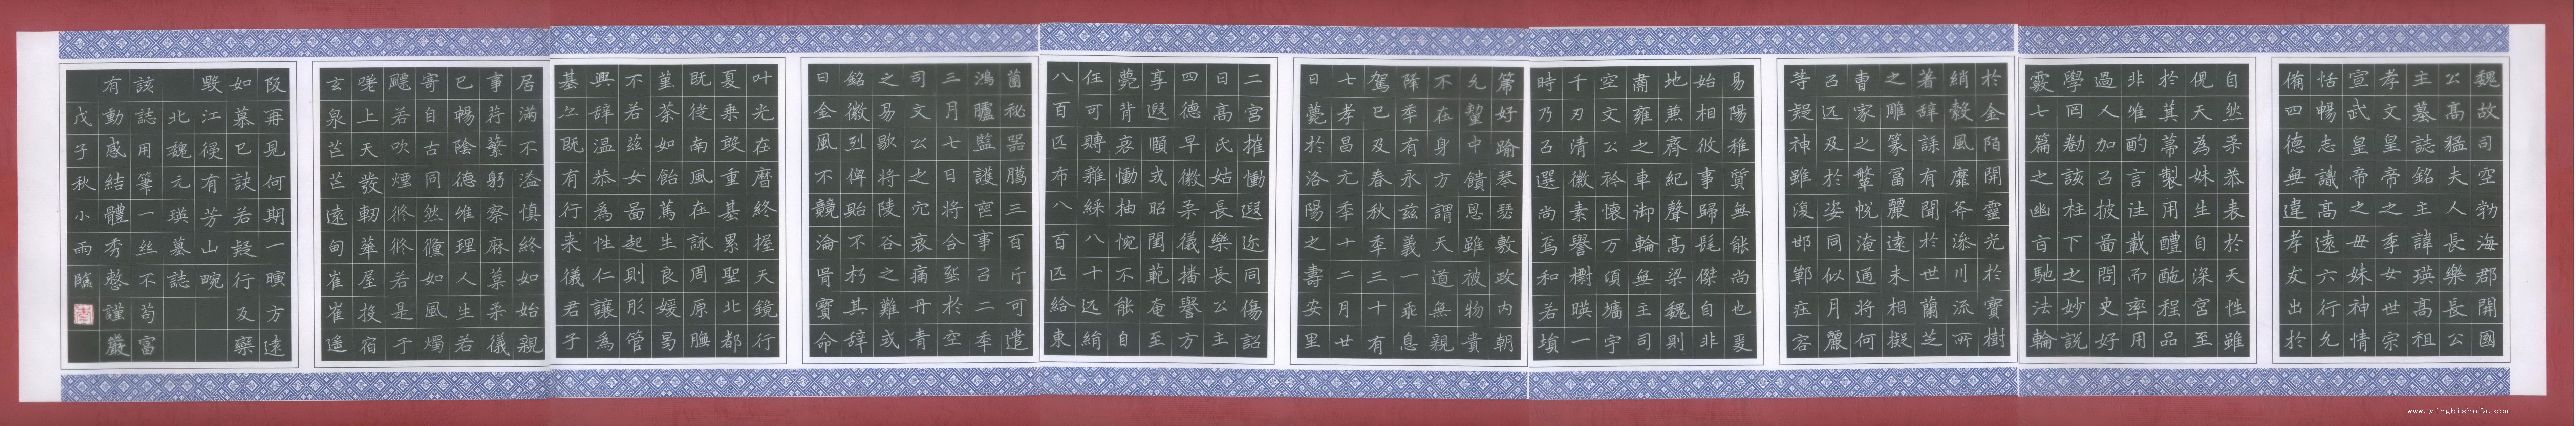 魏故司空勃海郡開國
公高猛夫人長樂長公
主墓誌銘主諱瑛高祖
孝文皇帝之季女世宗
宣武皇帝之母妹神情
恬暢志識高遠六行允
備四德無違孝友出於
自然柔恭表於天性雖
俔天為妹生自深宮至
於箕蒂製用醴酏程品
非唯酌言注載而率用
過人加㠯披啚問史好
學罔勌該柱下之妙說
覈七篇之幽旨馳法輪
於金陌開靈光於寶樹
綃縠風靡斧藻川流所
著辞誄有聞於世蘭芝
之雕篆富麗遠未相擬
曹家之鞶帨淹通將何
㠯远及於姿同似月麗
等疑神雖復邯鄲莊容
易陽稚質無能尚也爰
始相攸事歸髦傑自非
地兼齊紀聲高梁魏則
肅雍之車御輪無主司
空文公衿懷万頃墉宇
千刃清徽素譽櫛暎一
時乃㠯選尚焉和若塤
篪好踰琴瑟敷政內朝
允釐中饋恩雖被物貴
不在身方謂天道無親
降季有永茲義一乖息
駕已及春秋季三十有
七孝昌元季十二月廿
日薨於洛陽之壽安里
二宮摧慟遐迩同傷詔
曰高氏姑長樂長公主
四德早徽柔儀播譽方
享遐頤或昭閨範奄至
薨背哀慟抽惋不能自
任可賻雜綵八十远絹
八百匹布八百匹給東
薗秘器臈三百斤可遣
鴻臚監護喪事㠯二季
三月七日將合窆於空
司文公之宂哀痛丹青
之易歇將陵谷之難或
銘徽列俾貽不朽其辞
曰金風不競淪骨寶命
叶光在曆終握天鏡行
夏乘殷重基累聖北都
既從南風在詠周原膴
堇荼如飴篤生良媛曷
不若茲女啚起則彤管
興辞温恭為性仁讓為
基亦既有行来儀君子
居滿不溢慎終如始親
事蒋蘩躬察麻葈柔儀
已暢陰德維理人生若
寄自古同然儵如風燭
飈若吹煙悠悠若是于
嗟上天發軔華屋投宿
玄泉芒芒遠甸崔崔遙
阪再見何期一瞑方遠
如慕已訣若疑行及藥
毀江侵有芳山畹
北魏元瑛墓誌
該誌用筆一丝不苟富
有動感結體秀整謹嚴
戊子秋小雨臨
www.yingbishufa.com